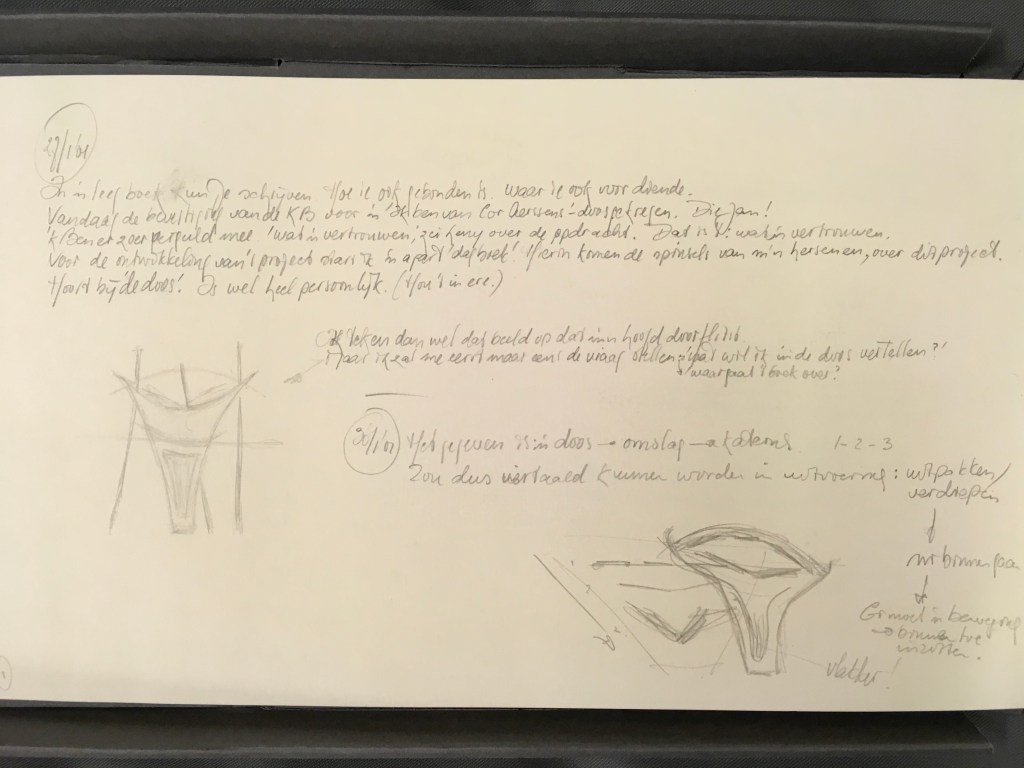 29/1'01
In 'n leeg boek kun je schrijven Hoe ie ook gebonden is. waar ie ook voor diende.
Vandaag de bevestiging van de KB voor 'n 'Ik ben van Cor Aerssens'-doos gekregen. Die Jan!
'k Ben er zo vereguld mee 'wat 'n vertrouwen,' zei over de opdracht. Dat is 't: wat 'n vertrouwen.
Voor de ontwikkeling van 't project start ik 'n apart 'dagboek'. Hierin komen de spinsels van m'n hersenen, over dit project.
Hoort bij 'de doos'. Is wel heel persoonlijk. (Hou 't in ere.)
Ik teken dan wel dat beeld op dat in m'n hoofd doorflitst
Maar ik zal me eerst maar eens de vraag stellen: 'wat wil ik in de doos vertellen?'
waar gaat 't boek over?
30/1'01 Het gegeven is: 'n doos → omslag → katern 1-2-3
Zou dus vertaald kunnen worden in uitvoering: uitpakken/
verdiepen
naar binnen gaan
Er moet 'n beweging
→ binnen toe
inzitten.
vlakker!